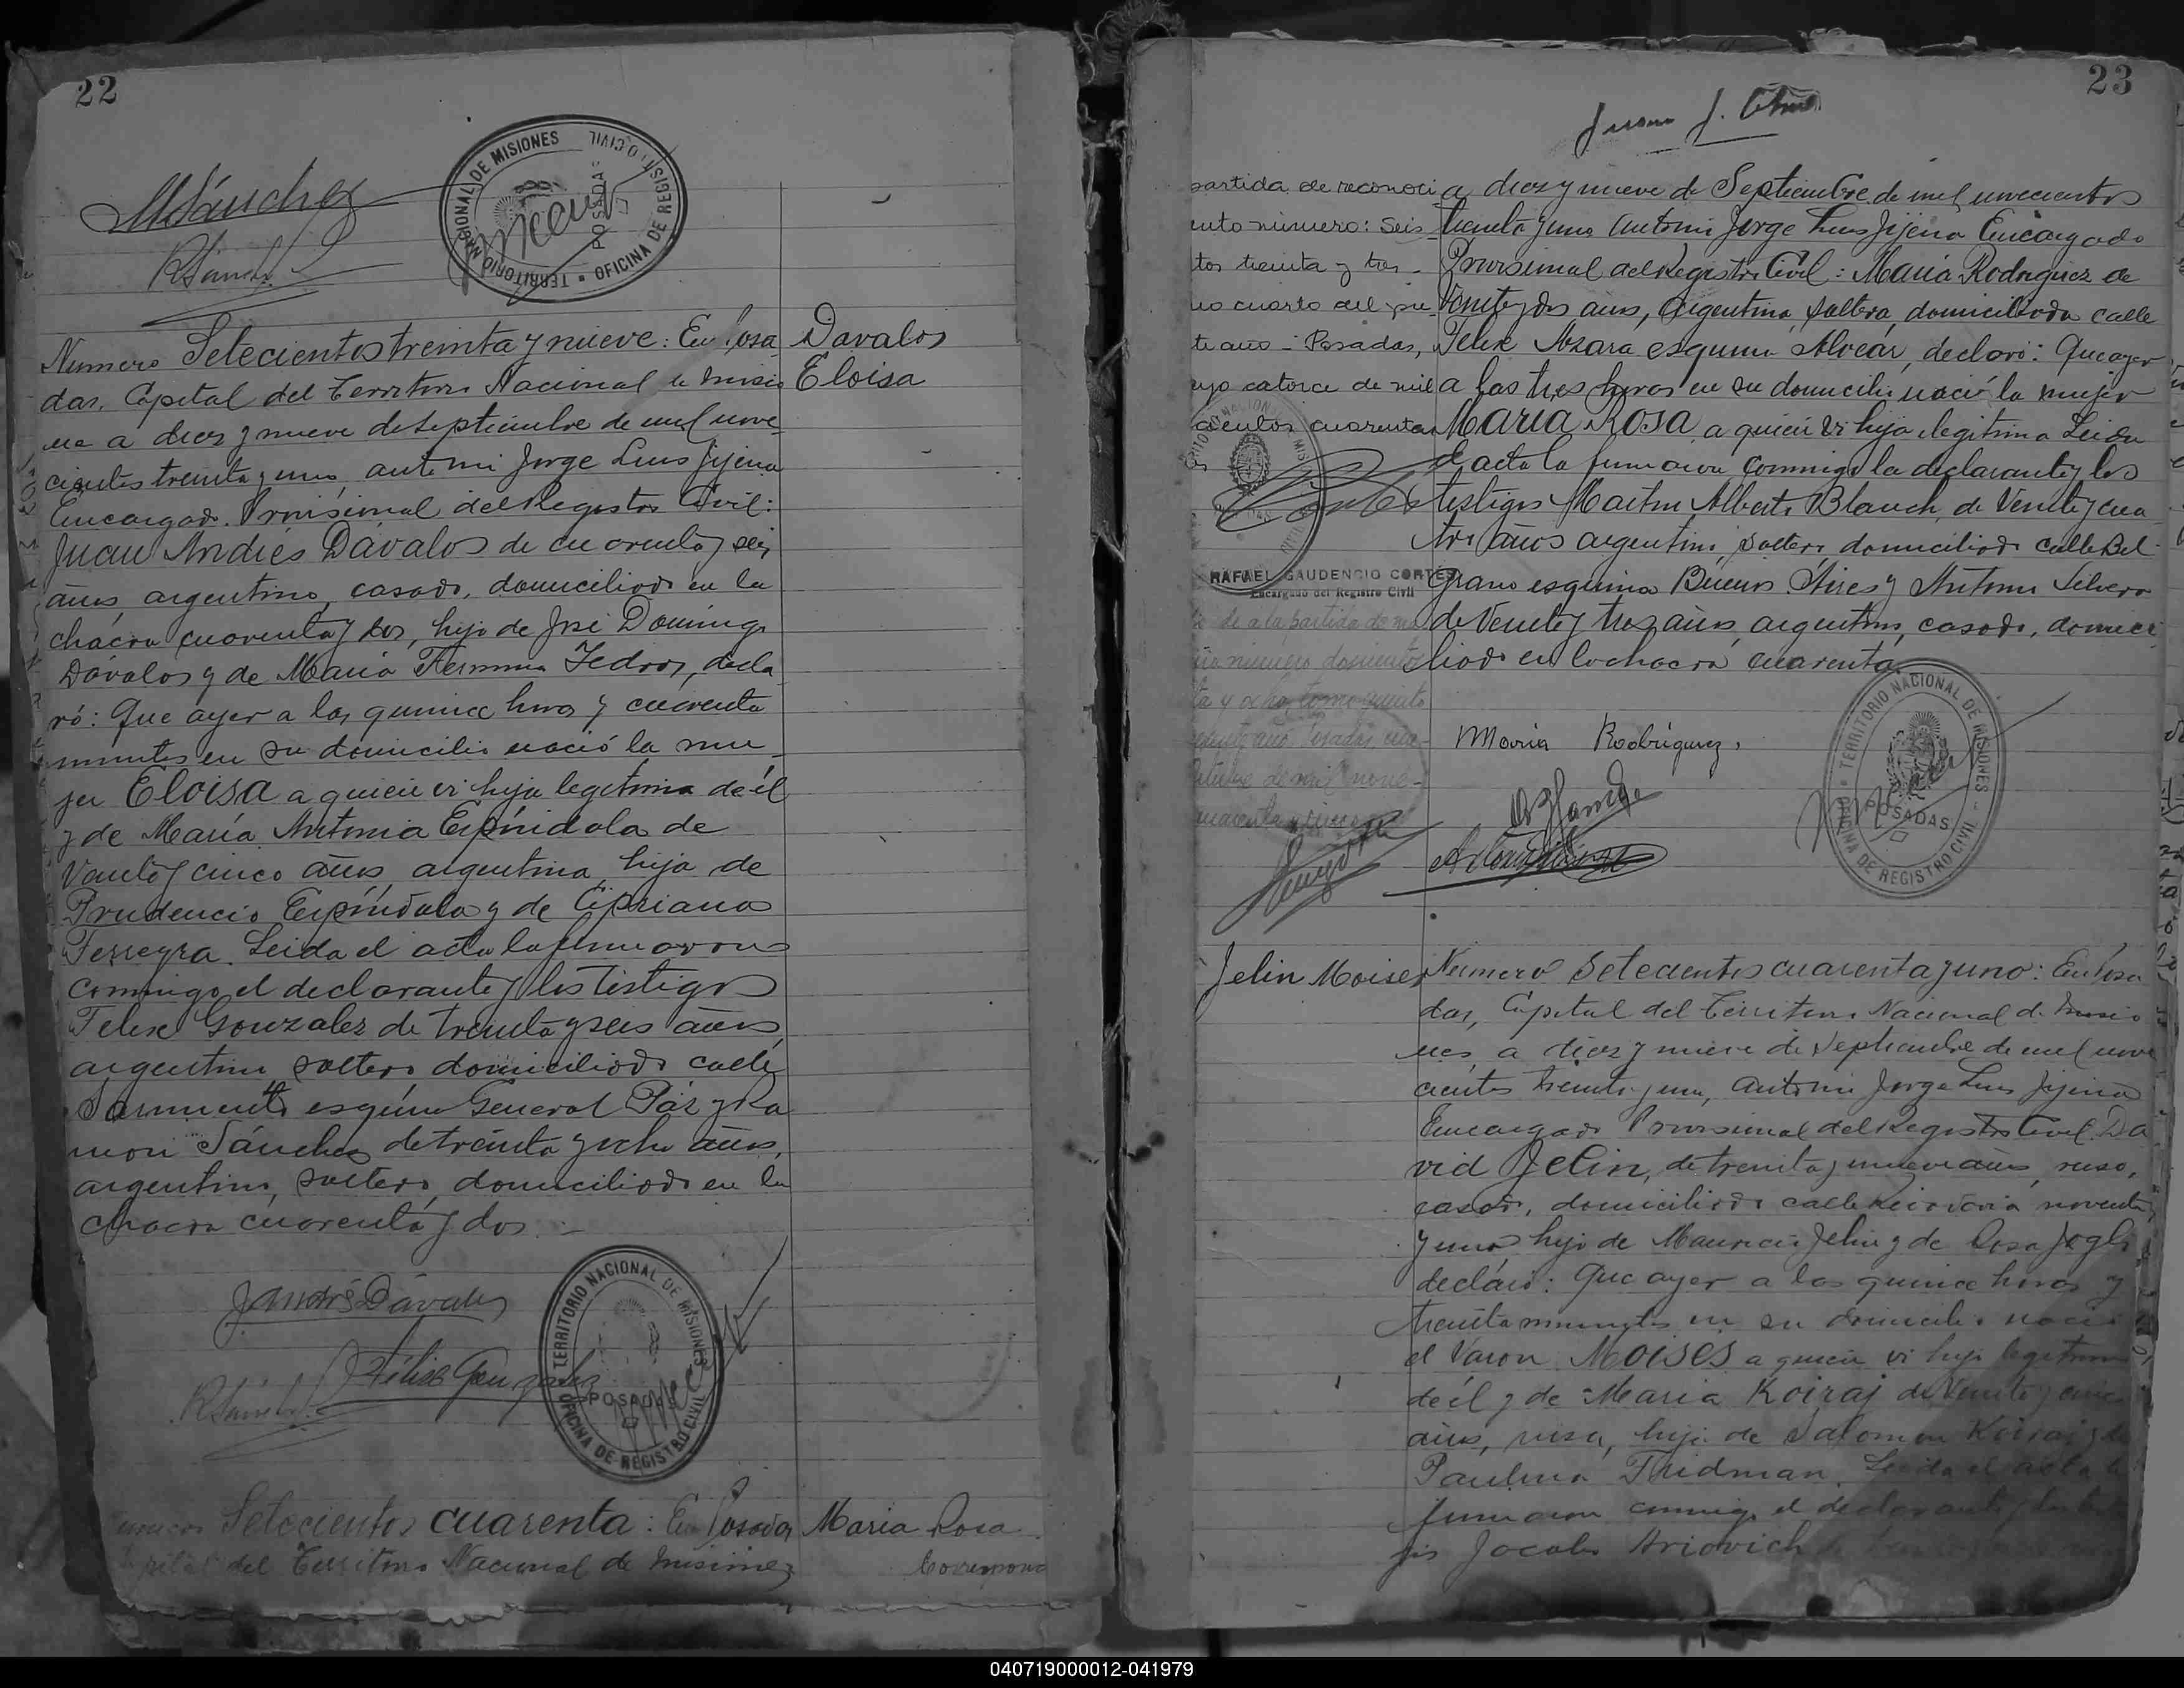 22
MSánchez
RSánchez
TERRITORIO NACIONAL DE MISIONES
OFICINA DE REGISTRO CIVIL
POSADAS
Davalos
Eloisa
Numero Setecientos treinta y nueve: En Posa
das, Capital del Territorio Nacional de Misio
nes a diez y nueve de Septiembre de mil nove
cientos treinta y uno, ante mi Jorge Luis Jijena
Encargado Provisional del Registro Civil:
Juan Andrés Dávalos de cuarenta y seis
años, argentino, casado, domiciliado en la
chacra cuarenta y dos, hijo de José Domingo
Dávalos y de Maria Fermina, decla
ró: Que ayer a las quince horas y cuarenta
minutos en su domicilio nació la mu
jer Eloisa a quien vi hija legitima de él
y de María Antonia Espíndola de
Veinte y cinco años, argentina, hija de
Prudencio Espíndola y de Cipriana
Ferreyra. Leida el acta la firmaron
conmigo el declarante y los testigos
Felix Gonzalez de treinta y seis años
argentino, soltero domiciliado calle
Sarmiento esquina General Páz y Ra
mon Sánchez de treinta y ocho años,
argentino, soltero, domiciliado en la
chacra cuarenta y dos.
J Andrés Dávalos
Félix González
RSánchez
TERRITORIO NACIONAL DE MISIONES
OFICINA DE REGISTRO CIVIL
POSADAS
Setecientos cuarenta: En Posadas
Capital del Territorio Nacional de Misiones
Maria Rosa
Corresponde
23
Juan J.
a diez y nueve de Septiembre de mil novecientos
treinta y uno ante mi Jorge Luis Jijena Encargado
Provisional del Registro Civil: María Rodriguez de
Veinte y dos años, argentina, soltera, domiciliada calle
Felix Azara esquina Alvear, declaró: Que ayer
a las tres horas en su domicilio nació la mujer
MARIA ROSA a quien vi hija ilegitima Leida
el acta la firmaron conmigo la declarante y los
testigos Martin Alberto Blanch, de Veinte y cua
tro años argentino soltero domiciliado calle Bel
grano esquina Buenos Aires y Antonio
de Veinte y tres años, argentino, casado, domici
liado en la chacra cuarenta
partida de reconoci
ento número: Seis
tos treinta y tres
cuarto del pre
te año - Posadas,
ayo catorce de mil
cientos cuarenta
RAFAEL GAUDENCIO CORTÉS
Encargado del Registro Civil
de a la partida de
número doscientos
ta y ocho, tomo quinto
año. Posadas,
de mil nove-
cuarenta y cinco
Maria Rodriguez.
TERRITORIO NACIONAL DE MISIONES
OFICINA DE REGISTRO CIVIL
POSADAS
Jelin Moises
Numero Setecientos cuarenta y uno: En Posa
das, Capital del Territorio Nacional de Misio
nes, a diez y nueve de Septiembre de mil nove
cientos treinta y uno, ante mi Jorge Luis Jijena
Encargado Provisional del Registro Civil. Da
vid Jelin, de treinta y nueve años, ruso,
casado, domiciliado calle Rivadavia noventa
y uno hijo de Mauricio Jelin y de Rosa
declaró: Que ayer a las quince horas y
treinta minutos en su domicilio nació
el Varon MOISES a quien vi hijo legitimo
de él y de Maria Koiraj de Veinte y cinco
años, rusa, hija de Salomon Koiraj y de
Paulina Fridman. Leida el acta la
firmaron conmigo el declarante y los tes
gos Jacobo Ariovich
040719000012-041979